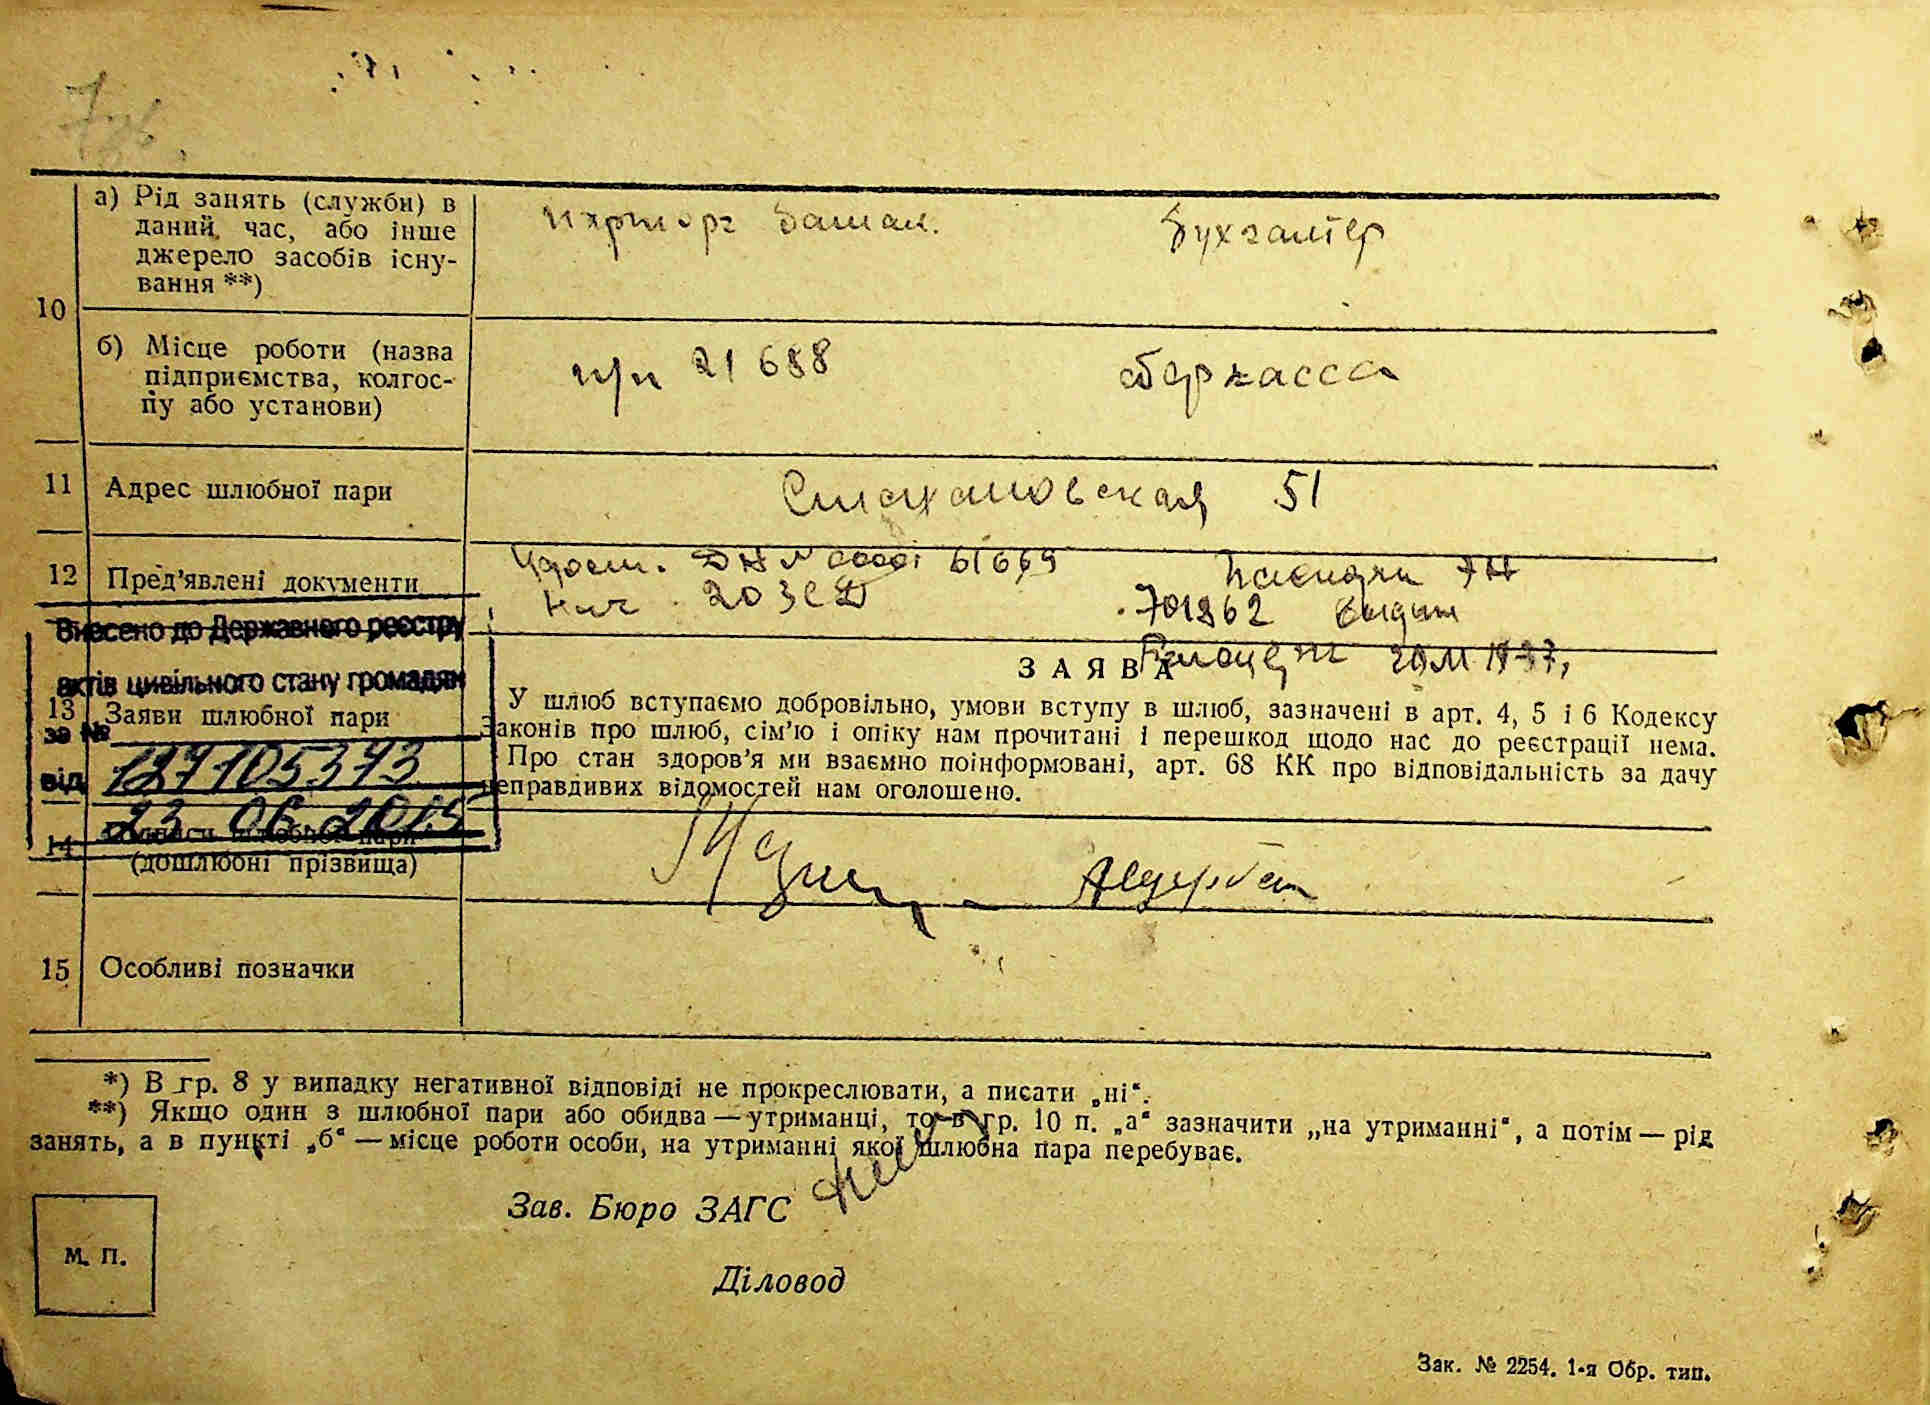 10
а) Рід занять (служби) в
даний час, або інше
джерело засобів існу-
вання **)
парторг батал.
бухгалтер
б) Місце роботи (назва
підприємства, колгос-
пу або установи)
п/п 21688
сберкасса
11 Адрес шлюбної пари
Стахановская 51
12 Пред’явлені документи
Удост.
61669
701862
Внесено до Державного реєстру
актів цивільного стану громадян
за №
127105373
від
23 06. 2015
13 Заяви шлюбної пари
ЗАЯВА
У шлюб вступаємо добровільно, умови вступу в шлюб, зазначені в арт. 4, 5 і 6 Кодексу
Законів про шлюб, сім’ю і опіку нам прочитані і перешкод щодо нас до реєстрації нема.
Про стан здоров’я ми взаємно поінформовані, арт. 68 КК про відповідальність за дачу
неправдивих відомостей нам оголошено.
14 Підписи шлюбної пари
(дошлюбні прізвища)
15 Особливі позначки
*) В гр. 8 у випадку негативної відповіді не прокреслювати, а писати „ні“.
**) Якщо один з шлюбної пари або обидва — утриманці, то в гр. 10 п. „а“ зазначити „на утриманні“, а потім — рід
занять, а в пункті „б“ — місце роботи особи, на утриманні якої шлюбна пара перебуває.
Зав. Бюро ЗАГС
М. П.
Діловод
Зак. № 2254. 1-я Обр. тип.